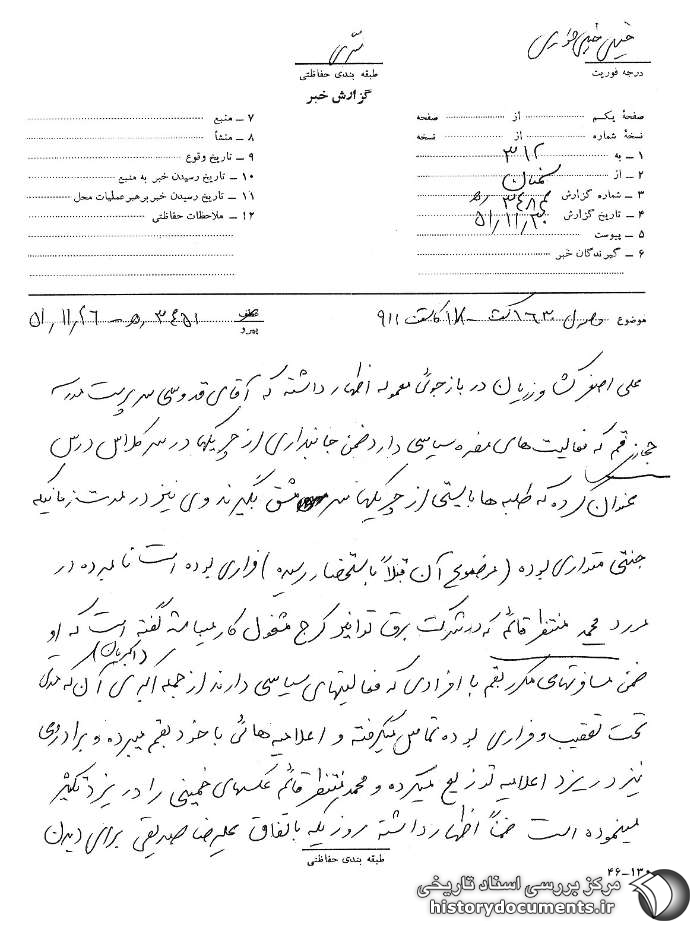 خیلی خیلی فوری
درجه فوریت
سری
طبقه بندی حفاظتی
گزارش خبر
صفحهٔ یکم از صفحه
نسخهٔ شماره از نسخه
۱ – به ۳۱۲
۲ – از
۳ – شماره گزارش
۴ – تاریخ گزارش ۵۱/۱۱/۳۰
۵ – پیوست
۶ – گیرندگان خبر
۷ – منبع
۸ – منشأ
۹ – تاریخ وقوع
۱۰ – تاریخ رسیدن خبر به منبع
۱۱ – تاریخ رسیدن خبر برهبر عملیات محل
۱۲ – ملاحظات حفاظتی
موضوع
پیرو ۳۴۵۱ – ۵۱/۱۱/۲۶
علی اصغر کشاورزیان در بازجوئی معموله اظهار داشته که آقای قدوسی سرپرست مدرسه
قم که فعالیت های مضره سیاسی دارد ضمن جانبداری از چریکها در سر کلاس درس
عنوان کرده که طلبه ها بایستی از چریکها سرمشق بگیرند وی نیز در مدت زمانیکه
جنتی متواری بوده (موضوع آن قبلاً باستحضار رسیده) فراری بوده است نامبرده در
مورد محمد منتظر قائم که در شرکت برق توانیر کرج مشغول کار میباشد گفته است که او
ضمن مسافرتهای مکرر بقم با افرادی که فعالیتهای سیاسی دارند از جمله اکبری آن که مدتی
تحت تعقیب و فراری بوده تماس میگرفته و اعلامیه هائی با خود بقم میبرده و برادر وی
نیز در یزد اعلامیه توزیع میکرده و محمد منتظر قائم عکسهای خمینی را در یزد تکثیر
مینموده است ضمناً اظهار داشته روزیکه باتفاق علیرضا صدیقی برای دیدن
طبقه بندی حفاظتی
۴۶–۱۳۰
مرکز بررسی اسناد تاریخی
historydocuments.ir